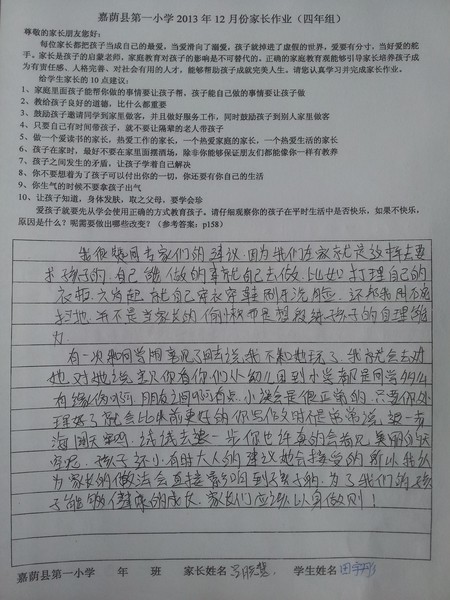 嘉荫县第一小学 2013 年 12 月份家长作业（四年组）
尊敬的家长朋友您好：
每位家长都把孩子当成自己的最爱，当爱滑向了溺爱，孩子就掉进了虚假的世界，爱要有分寸，当好爱的舵
手。家长是孩子的启蒙老师，家庭教育对孩子的影响是不可替代的。正确的家庭教育观能够引导家长培养孩子成
为有责任感、人格完善、对社会有用的人才，能够帮助孩子成就完美人生。请您认真学习并完成家长作业。
给学生家长的 10 点建议：
1、家庭里面孩子能帮你做的事情要让孩子帮，孩子能自己做的事情要让孩子做
2、教给孩子良好的道德，比什么都重要
3、鼓励孩子邀请同学到家里做客，并且做好服务工作，同时鼓励孩子到别人家里做客
4、只要自己有时间带孩子，就不要让隔辈的老人带孩子
5、做一个爱读书的家长，热爱工作的家长，一个热爱家庭的家长，一个热爱生活的家长
6、孩子在家时，最好不要在家里面摆酒场，除非你能够保证朋友们都能像你一样有教养
7、孩子之间发生的矛盾，让孩子学着自己解决
8、你不要想着为了孩子可以付出你的一切，你还要有你自己的生活
9、你生气的时候不要拿孩子出气
10、让孩子知道，身体发肤，取之父母，要学会珍
爱孩子就要先从学会使用正确的方式教育孩子。请仔细观察你的孩子在平时生活中是否快乐，如果不快乐，
原因是什么？呢需要做出哪些改变？（参考答案：p158）
我很赞同专家们的建议,因为我们在家就是这样去要
求孩子的,自己能做的事就自己去做,比如打理自己的
衣柜,六岁起就自己穿衣穿鞋刷牙洗脸,还帮我用
扫地,并不是当家长的偷懒也是想锻练孩子的自理能
力
有一次和同学闹意见了回去说,我不和她玩了,我就会去劝
她,对她说宝贝你看你们从幼儿园到小学都是同学
有缘份啊,朋友之间啊有点小误会是很正常的,只要你处
理好了就会比以前更好的你写作文时不是常常说,退一步
海阔天空吗,试试去退一步你也许真的会看见美丽的天
空呢,孩子还小有时大人的建议她会接受的所以我认
为家长的做法会直接影响到孩子的,为了我们的孩
子能够健康的成长,家长们应该以身做则!
嘉荫县第一小学 年 班 家长姓名 学生姓名